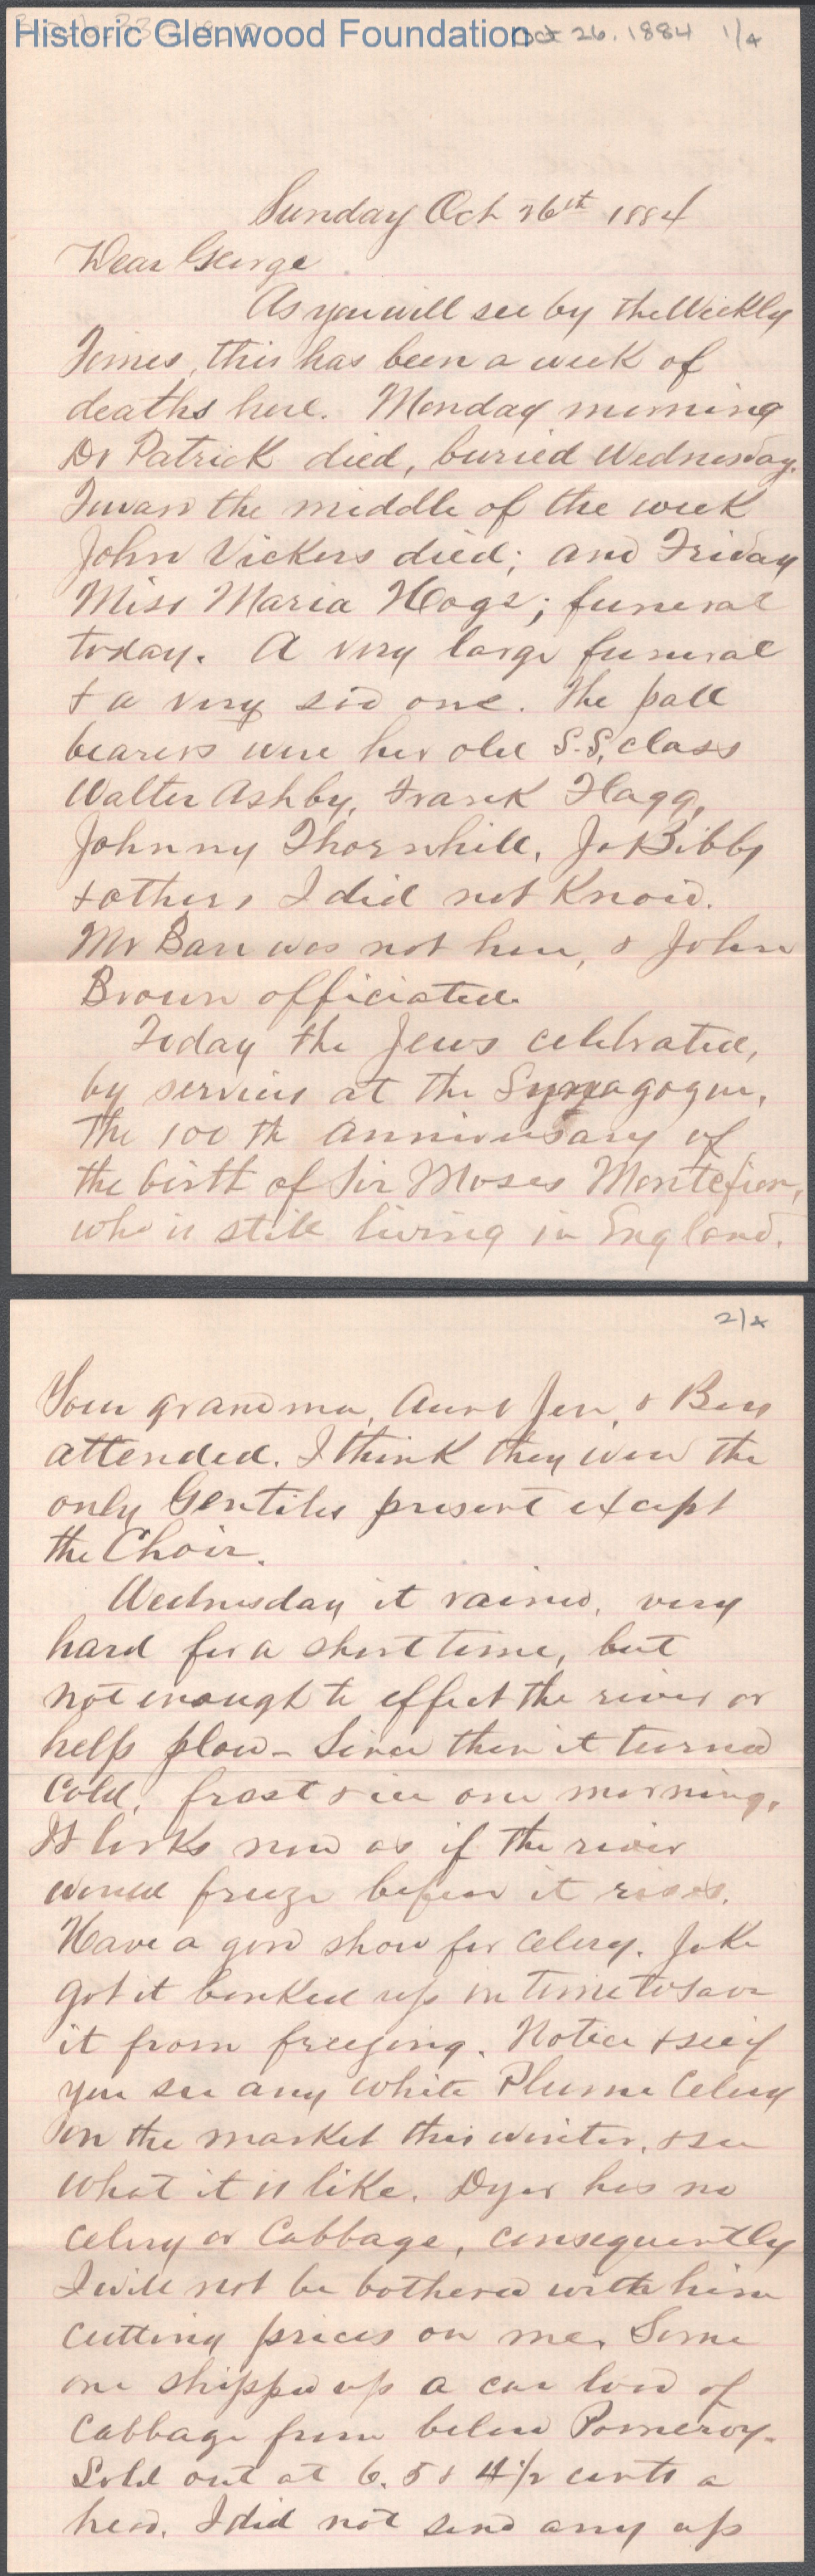 Historic Glenwood Foundation
Oct 26. 1884 1/4
Sunday Oct 26th 1884
Dear George
As you will see by the Weekly
Times, this has been a week of
deaths here. Monday morning
Dr Patrick died, buried Wednesday.
Twas the middle of the week
John Vickers died; and Friday
Miss Maria Hogs; funeral
today. A very large funeral
+ a very sad one. The pall
bearers were her old S.S. class
Walter Ashby, Frank Flagg,
Johnny Thornhill, Jo Bibby
+ others I did not know.
Mr Barr was not here, & John
Brown officiated.
Today the Jews celebrated,
by services at the Synagogue,
the 100th anniversary of
the birth of Sir Moses Montefiore,
who is still living in England.
2/4
Your grandma, Aunt Jen, & Bess
attended. I think they were the
only Gentiles present except
the Choir.
Wednesday it rained, very
hard for a short time, but
not enough to effect the river or
help plow - Since then it turned
cold, frost & ice one morning.
It looks now as if the river
would freeze before it rises.
Have a good show for celery. Jake
got it banked up in time to save
it from freezing. Notice & see if
you see any White Plume Celery
on the market this winter, & see
what it is like. Dyer has no
celery or Cabbage, consequently
I will not be bothered with him
cutting prices on me. Some
one shipped up a car load of
Cabbage from below Pomeroy.
Sold out at 6. 5 & 4 1/2 cents a
head. I did not send any up